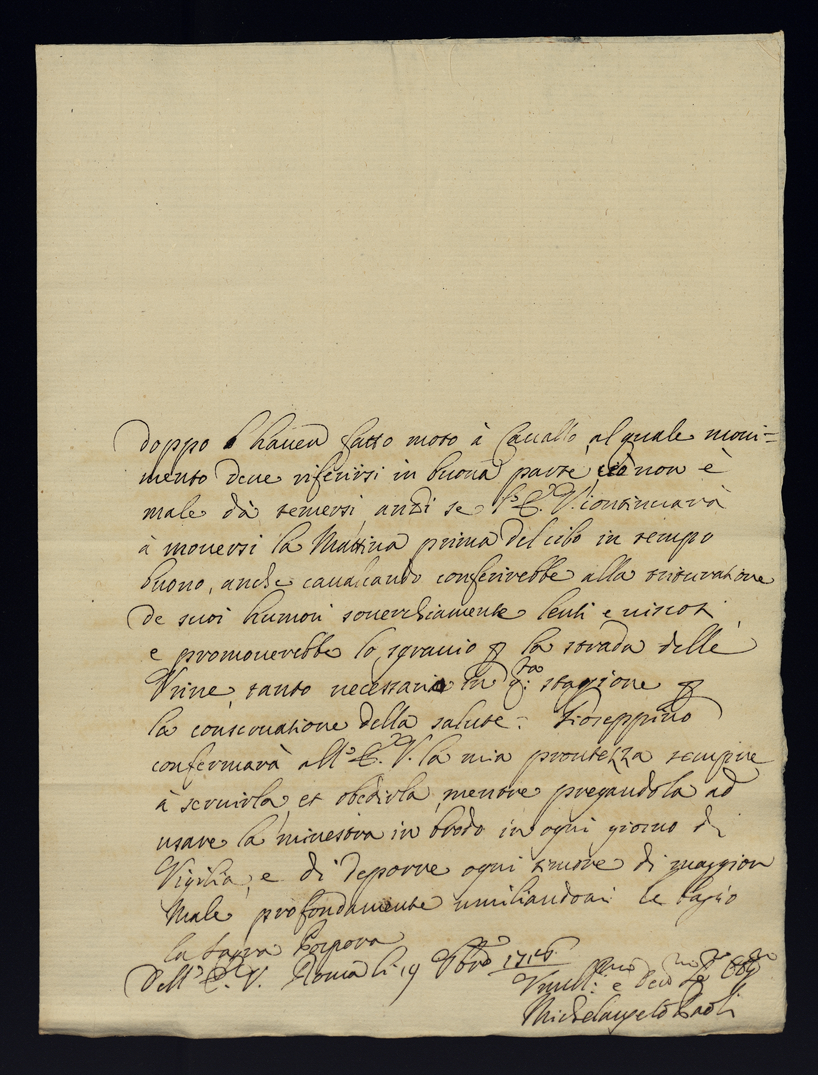 doppo l'hauer fatto moto à Cauallo, al quale moui=
mento deue riferirsi in buona parte, ciò non è
male dà temersi, anzi se l'E.V. continuarà
à mouersi la Mattina prima del cibo in tempo
buono, anche caualcando conferirebbe alla trituratione
de suoi humori souerchiamente lenti e uiscosi,
e promouerebbe lo sgrauio p la strada delle
Urine, tanto necessario in q:ta stagione p
la conseruatione della salute: Gioseppino
confermarà all'E.V. la mia prontezza sempre
à seruirla, et obedirla, mentre pregandola ad
usare la minestra in brodo in ogni giorno di
Vigilia, e di deporre ogni timore di maggior
Male, profondamente umiliandomi le bagio
la Sagra Porpora
Dell'E.V. Roma li 19 1715
Umill:mo e
Michelangelo Paoli